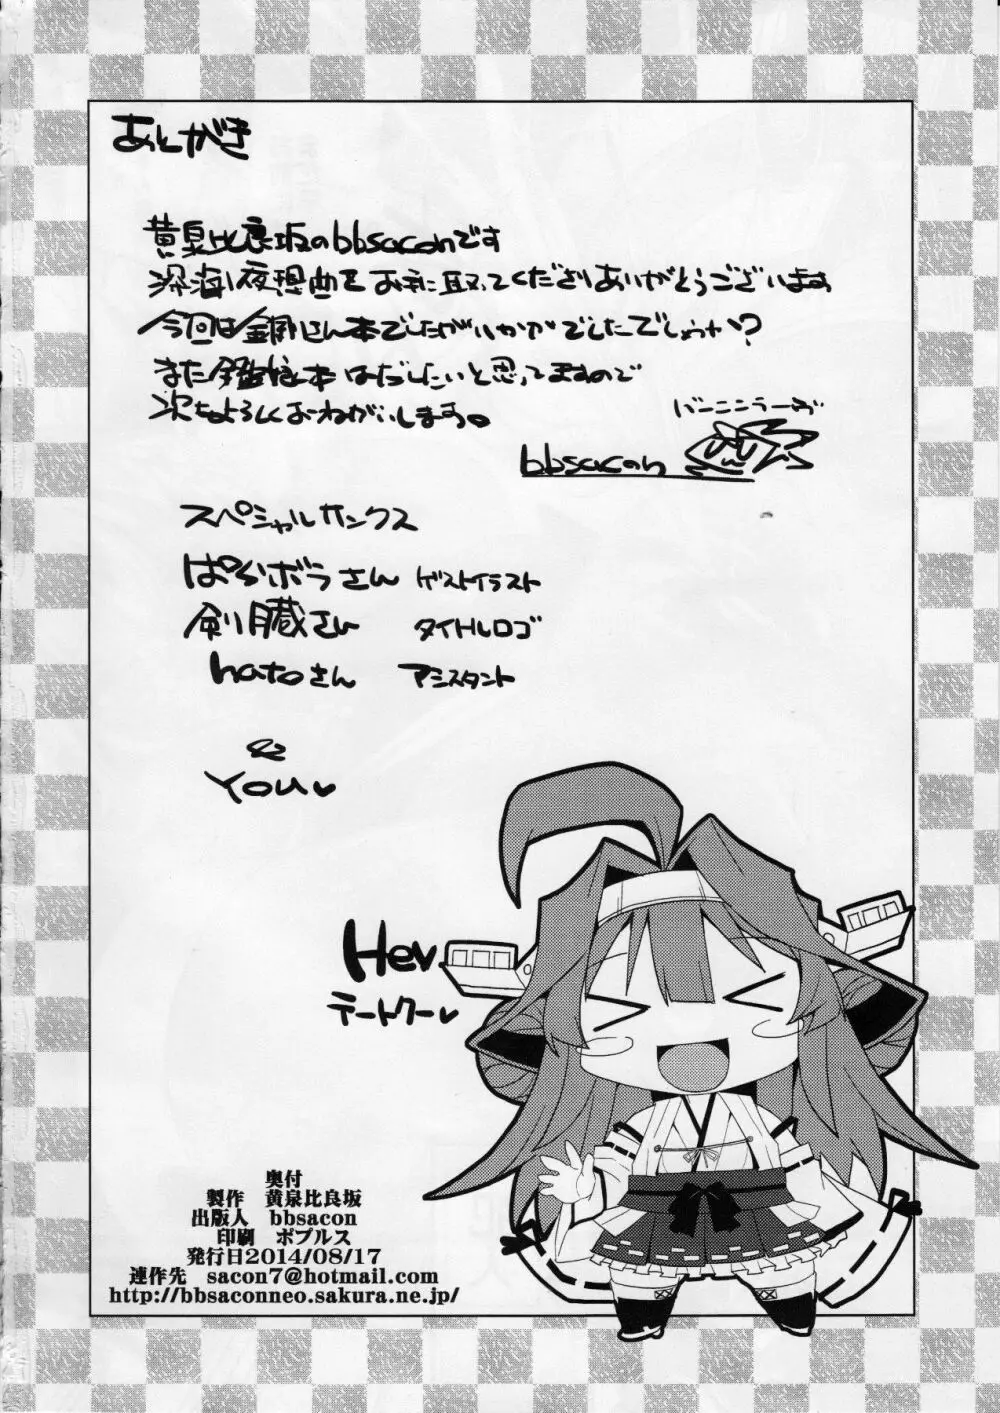 あとがき
黄泉比良坂のbbsaconです
深海夜想曲をお手に取ってくださりありがとうございます
今回は金剛さん本でしたがいかがでしたでしょか?
また艦娘本はだしたいと思ってますので
次もよろしくおねがいします。
バーニンラーヴ
bbsacon
スペシャルサンクス
ぱらボラさん ゲストイラスト
剣月蔵さん タイトルロゴ
hatoさん アシスタント
&
YOU♥
Hey
テートクー♥
奥付
製作 黄泉比良坂
出版人 bbsacon
印刷 ポプルス
発行日2014/08/17
連作先 sacon7@hotmail.com
http://bbsaconneo.sakura.ne.jp/